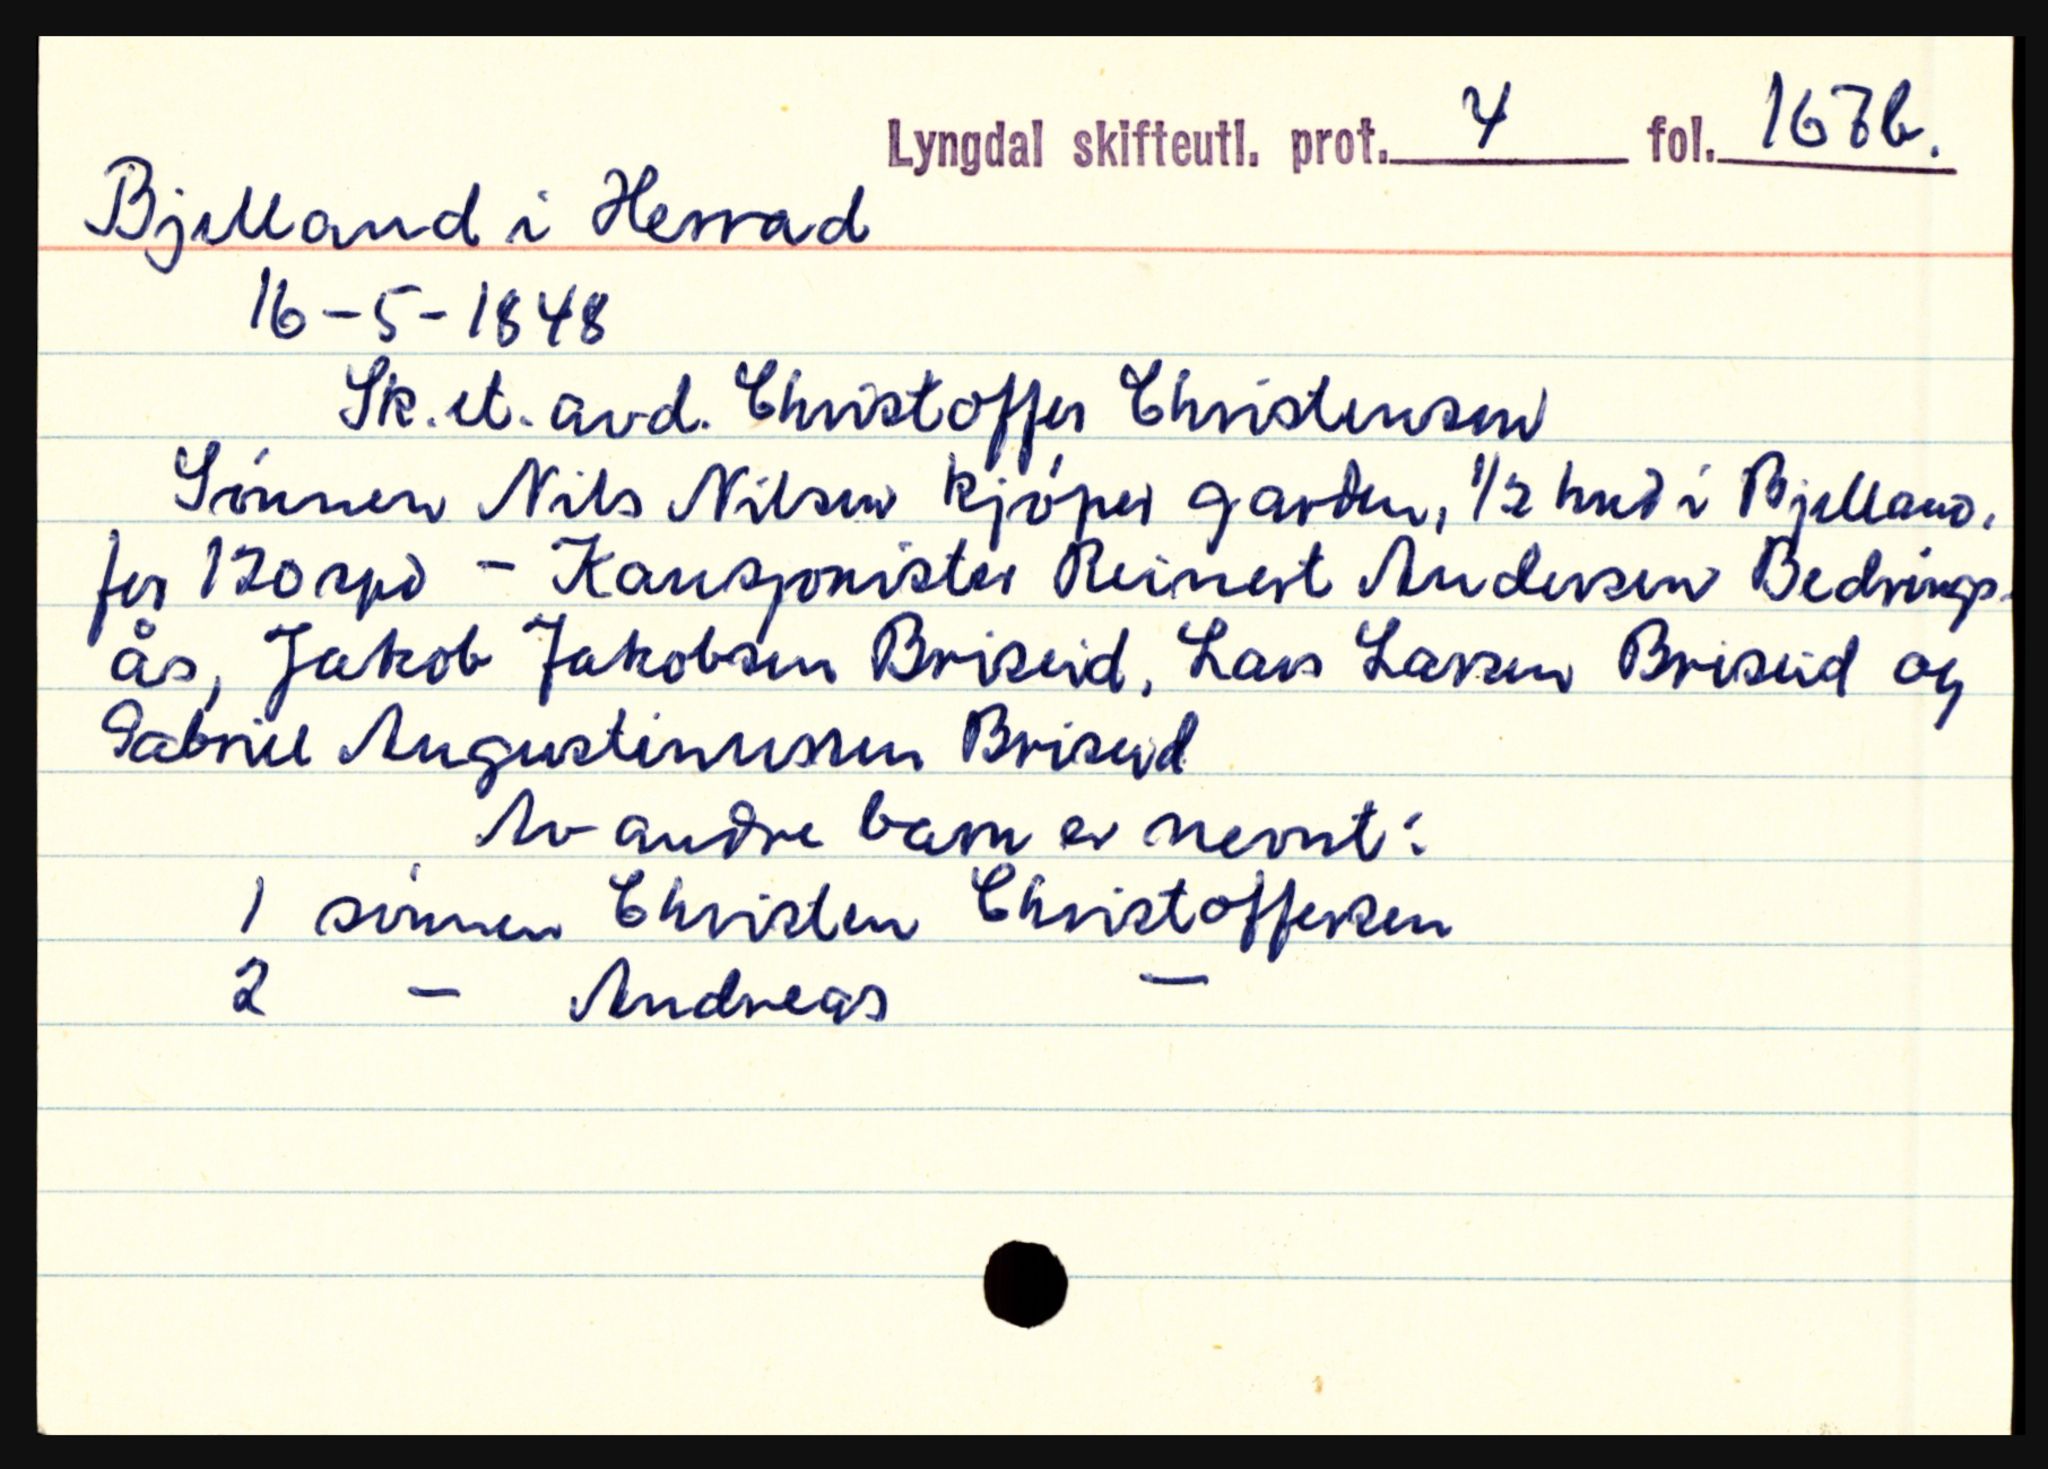 Lyngdal skifteutl. prot. 4 fol. 167b.
Bjelland i Herrad
16-5-1848
Sk. et. avd. Christoffer Christensen
Sønnen Nils Nilsen kjøper garden, 1/2 hud i Bjelland.
for 120 spd - Kausjonister Reinert Andersen Bedrings-
ås, Jakob Jakobsen Briseid, Lars Larsen Briseid og
Gabriel Augustinussen Briseid
Av andre barn er nevnt:
1 sønnen Christen Christoffersen
2 - Andreas -